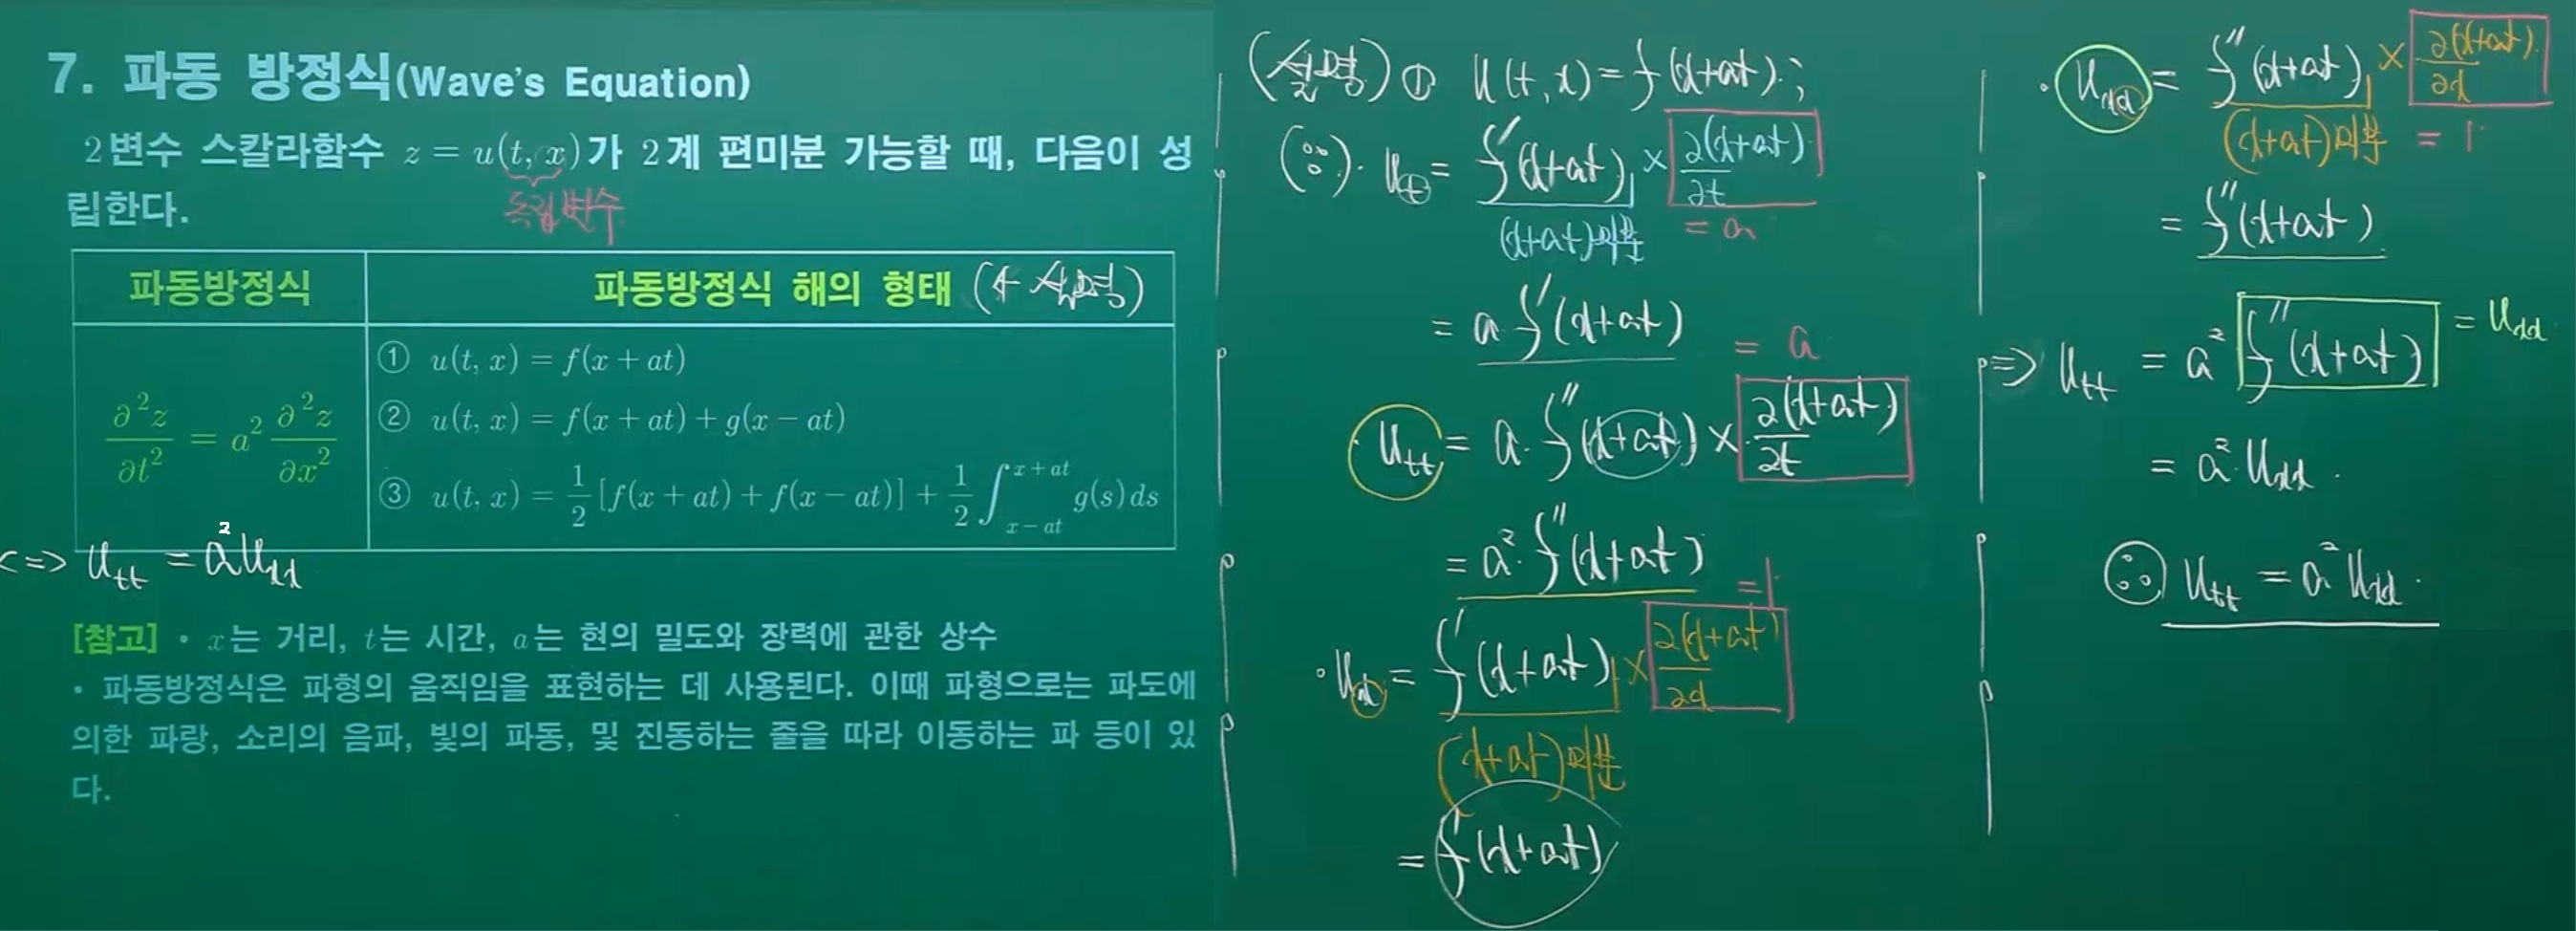 7. 파동 방정식(Wave's Equation)
2변수 스칼라함수 z = u(t, x)가 2계 편미분 가능할 때, 다음이 성
립한다.
독립변수
파동방정식
파동방정식 해의 형태 (← 설명)
∂²z/∂t² = a² ∂²z/∂x²
① u(t, x) = f(x + at)
② u(t, x) = f(x + at) + g(x − at)
③ u(t, x) = 1/2 [f(x + at) + f(x − at)] + 1/2 ∫_{x−at}^{x+at} g(s) ds
<=> u_tt = a² u_xx
[참고] • x는 거리, t는 시간, a는 현의 밀도와 장력에 관한 상수
• 파동방정식은 파형의 움직임을 표현하는 데 사용된다. 이때 파형으로는 파도에
의한 파랑, 소리의 음파, 빛의 파동, 및 진동하는 줄을 따라 이동하는 파 등이 있
다.
(설명) ① u(t, x) = f(x+at) ;
(∵) · u_t = f′(x+at) × ∂(x+at)/∂t
(x+at)미분 = a
= a f′(x+at)
= a
· u_tt = a · f″(x+at) × ∂(x+at)/∂t
= a² · f″(x+at)
= 1
· u_x = f′(x+at) × ∂(x+at)/∂x
(x+at)미분
= f′(x+at)
· u_xx = f″(x+at) × ∂(x+at)/∂x
(x+at)미분 = 1
= f″(x+at)
=> u_tt = a² f″(x+at) = u_xx
= a² · u_xx .
∴ u_tt = a² u_xx .